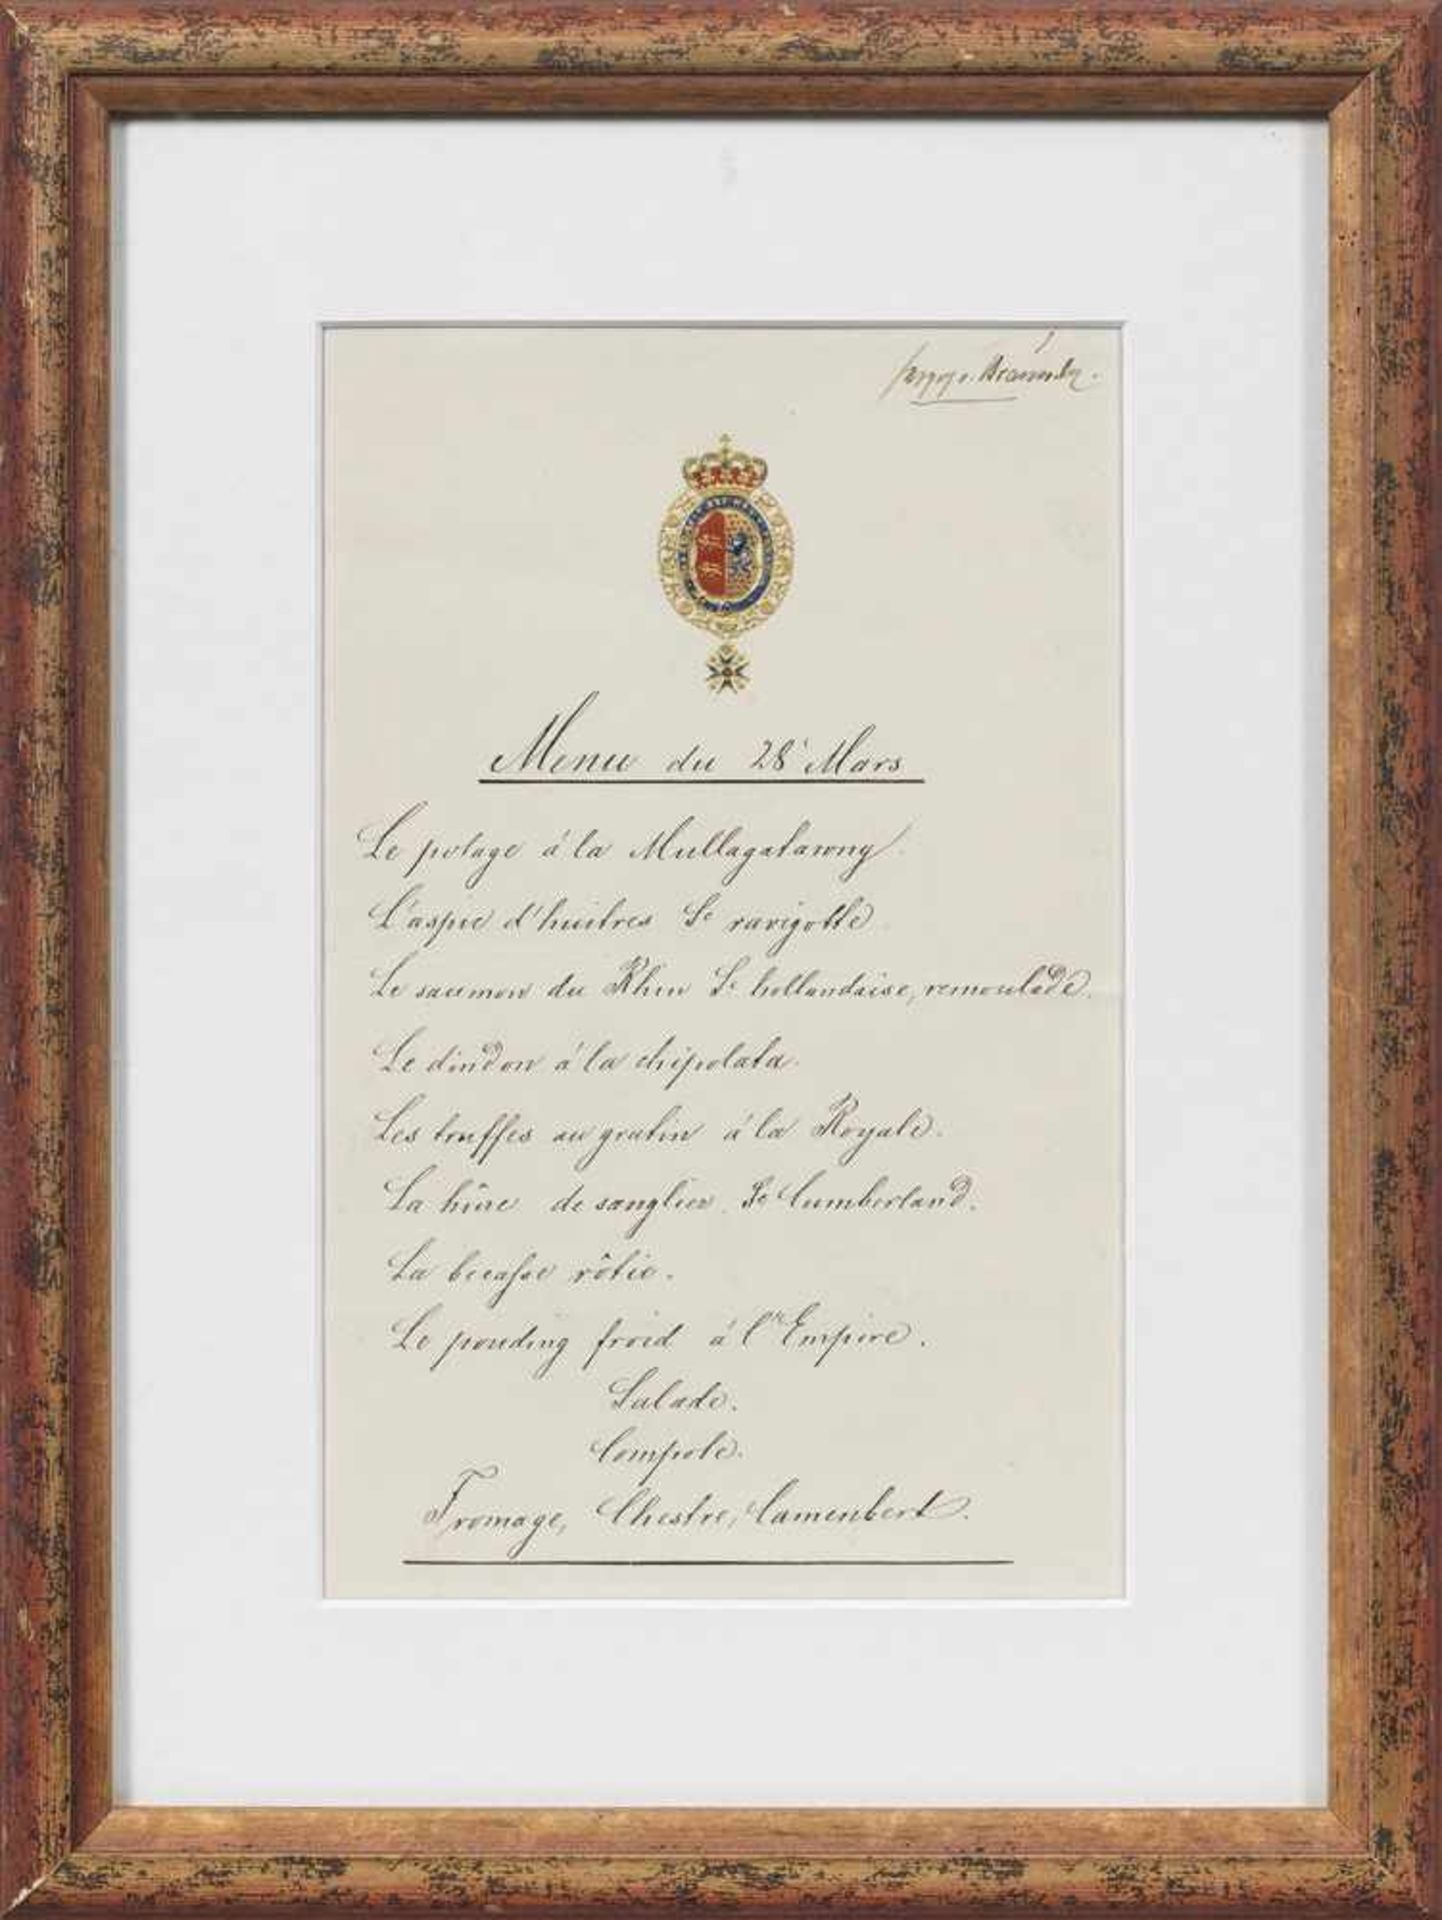 Menu du 28 Mars
Le potage à la Mullagatawny
L'aspic d'huitres Sc ravigotte
Le saumon du Rhin Sc hollandaise, remoulade.
Le dindon à la chipolata.
Les truffes au gratin à la Royale.
La hûre de sanglier Sc Cumberland.
La becasse rôtie.
Le pouding froid à l'Empire.
Salade.
Compote.
Fromage, Chestre, Camenbert.